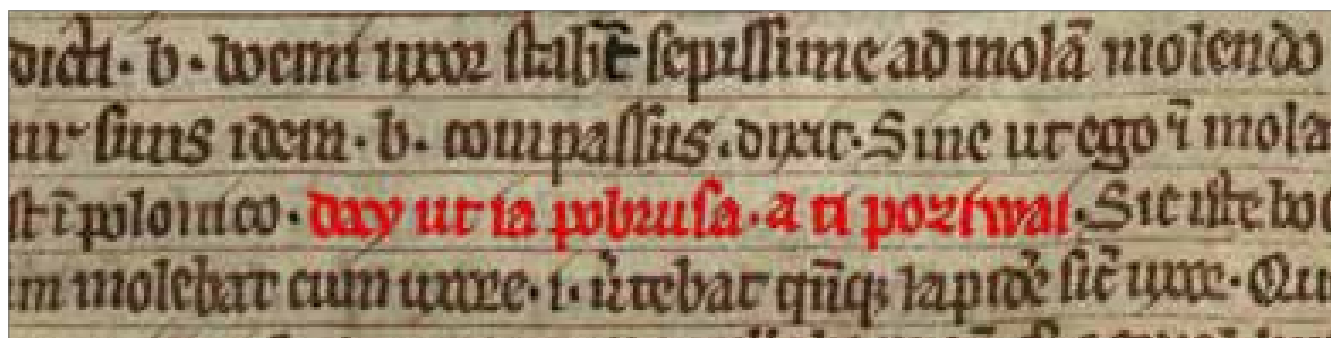 dicti · b · boemi uxor stabat sepissime ad molā molendo
suus idem · b · compassus · dixit · Sine ut ego ī mola
st ī polonico · day ut ia pobrusa · a ti poziwai · Sic iste boe
m molebat cum uxore · i · v̾tebat qn̄q; lapidē sic̄ uxor · Qu